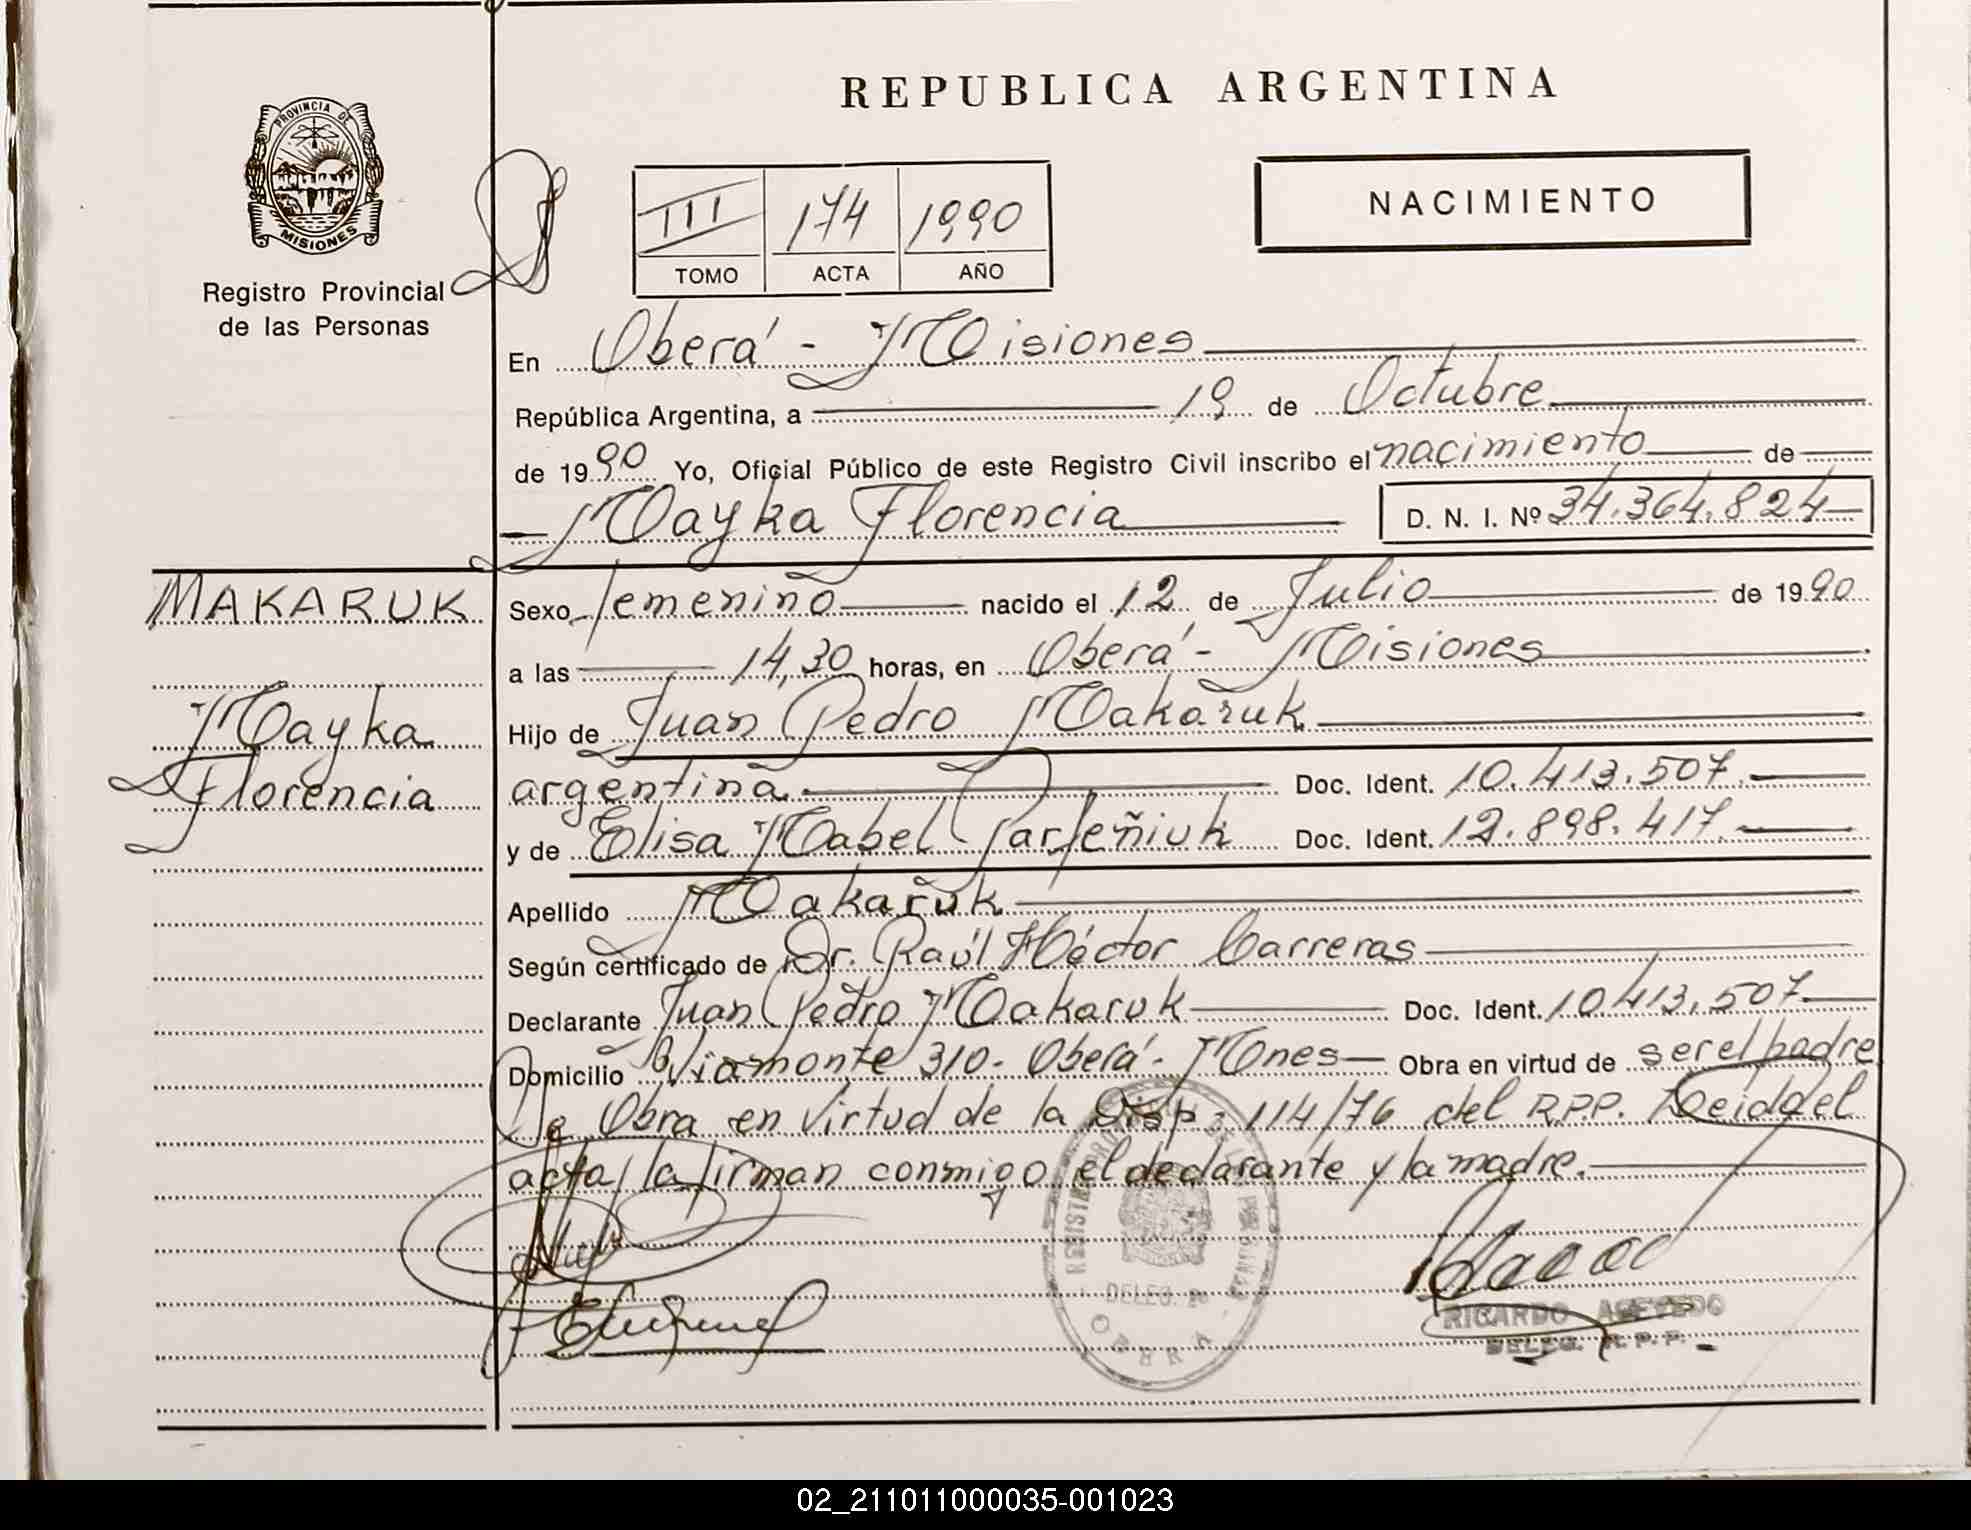 REPUBLICA ARGENTINA
PROVINCIA DE
MISIONES
Registro Provincial
de las Personas
III 174 1990
TOMO ACTA AÑO
NACIMIENTO
En Oberá - Misiones
República Argentina, a 19 de Octubre
de 1990 Yo, Oficial Público de este Registro Civil inscribo el nacimiento de
Mayka Florencia D. N. I. Nº 34.364.824
MAKARUK
Mayka
Florencia
Sexo femenino nacido el 12 de Julio de 1990
a las 14,30 horas, en Oberá - Misiones
Hijo de Juan Pedro Makaruk
argentina. Doc. Ident. 10.413.507.
y de Elisa Mabel Parfeñiuk Doc. Ident. 12.898.417.
Apellido Makaruk
Según certificado de Dr. Raúl Héctor Carreras
Declarante Juan Pedro Makaruk Doc. Ident. 10.413.507.
Domicilio Viamonte 310 - Oberá - Mnes Obra en virtud de ser el padre
Se Obra en virtud de la Disp. 114/76 del RPP. Leida el
acta, la firman conmigo el declarante y la madre.
DELEG.
OBERA
RICARDO ACEVEDO
DELEG. R. P. P.
02_211011000035-001023